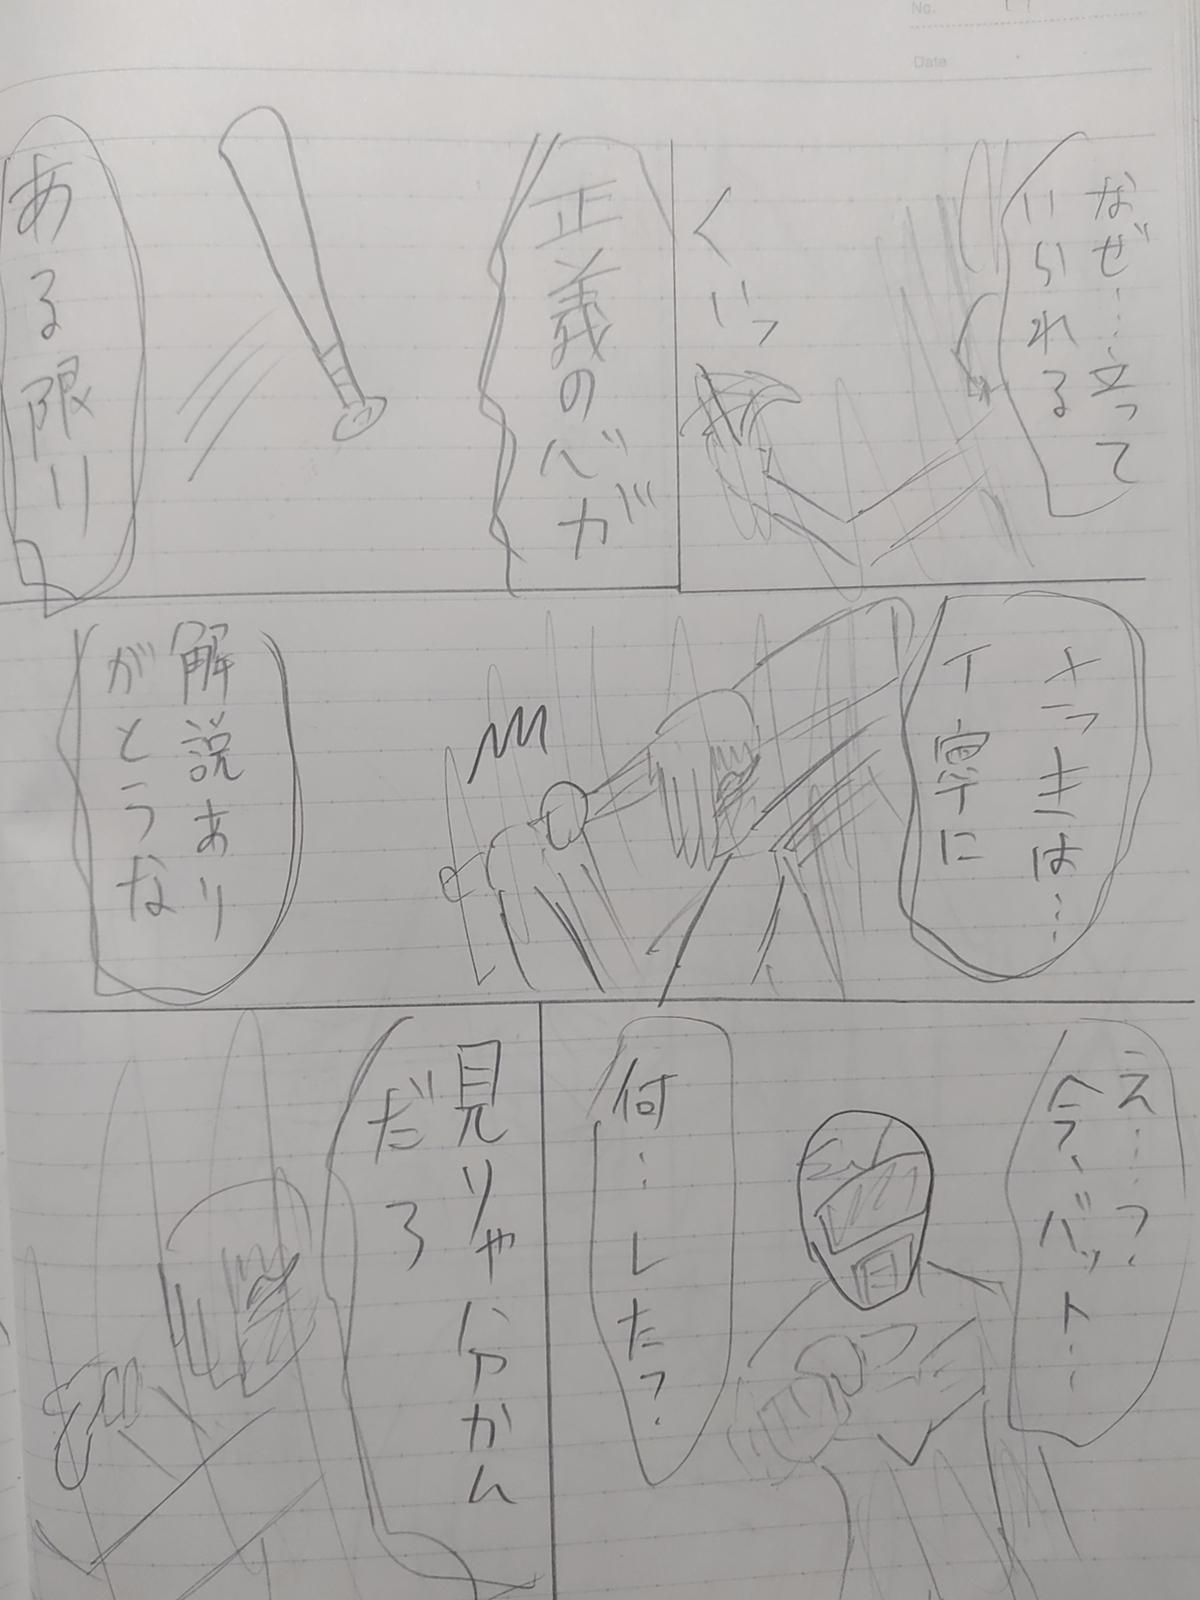 No.
Date
なぜ…立って
いられる
くいっ
正義の心が
ある限り
さっきは…
丁寧に
解説あり
がとうな
え…?
今、バット…
何…したっ?
見りゃ分かん
だろ